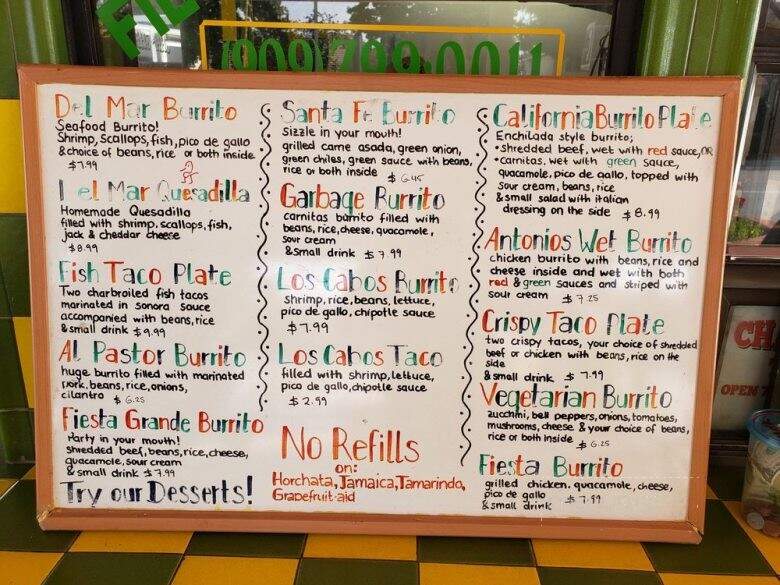 FIE
(909)799-0011
Del Mar Burrito
Seafood Burrito!
Shrimp, Scallops, fish, pico de gallo
& choice of beans, rice or both inside
$7.99
Del Mar Quesadilla
Homemade Quesadilla
filled with shrimp, scallops, fish,
jack & cheddar cheese
$8.99
Fish Taco Plate
Two charbroiled fish tacos
marinated in sonora sauce
accompanied with beans, rice
& small drink $9.99
Al Pastor Burrito
huge burrito filled with marinated
pork, beans, rice, onions,
cilantro $6.25
Fiesta Grande Burrito
Party in your mouth!
Shredded beef, beans, rice, cheese,
guacamole, sour cream
& small drink $7.99
Try our Desserts!
Santa Fe Burrito
Sizzle in your mouth!
grilled carne asada, green onion,
green chiles, green sauce with beans,
rice or both inside $6.45
Garbage Burrito
carnitas burrito filled with
beans, rice, cheese, guacamole,
sour cream
& small drink $7.99
Los Cabos Burrito
shrimp, rice, beans, lettuce,
pico de gallo, chipotle sauce
$7.99
Los Cabos Taco
filled with shrimp, lettuce,
pico de gallo, chipotle sauce
$2.99
No Refills
on:
Horchata, Jamaica, Tamarindo,
Grapefruit-aid
California Burrito Plate
Enchilada style burrito;
• shredded beef, wet with red sauce, OR
• carnitas, wet with green sauce,
guacamole, pico de gallo, topped with
sour cream, beans, rice
& small salad with italian
dressing on the side $8.99
Antonios Wet Burrito
chicken burrito with beans, rice and
cheese inside and wet with both
red & green sauces and striped with
sour cream $7.25
Crispy Taco Plate
two crispy tacos, your choice of shredded
beef or chicken with beans, rice on the
side
& small drink $7.99
Vegetarian Burrito
zucchini, bell peppers, onions, tomatoes,
mushrooms, cheese & your choice of beans,
rice or both inside $6.25
Fiesta Burrito
grilled chicken, guacamole, cheese,
pico de gallo
& small drink $7.99
CH
OPEN 7